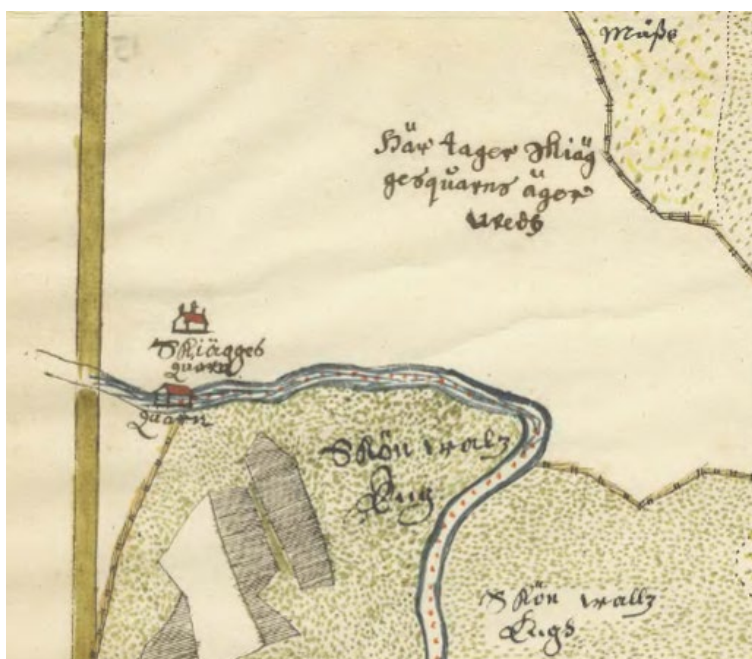 Måsse
Här tager Skiäg
gesquarns äger
wredh
Skiägges
quarn
Quarn
Skön wallz
Äng
Skön wallz
Ängh